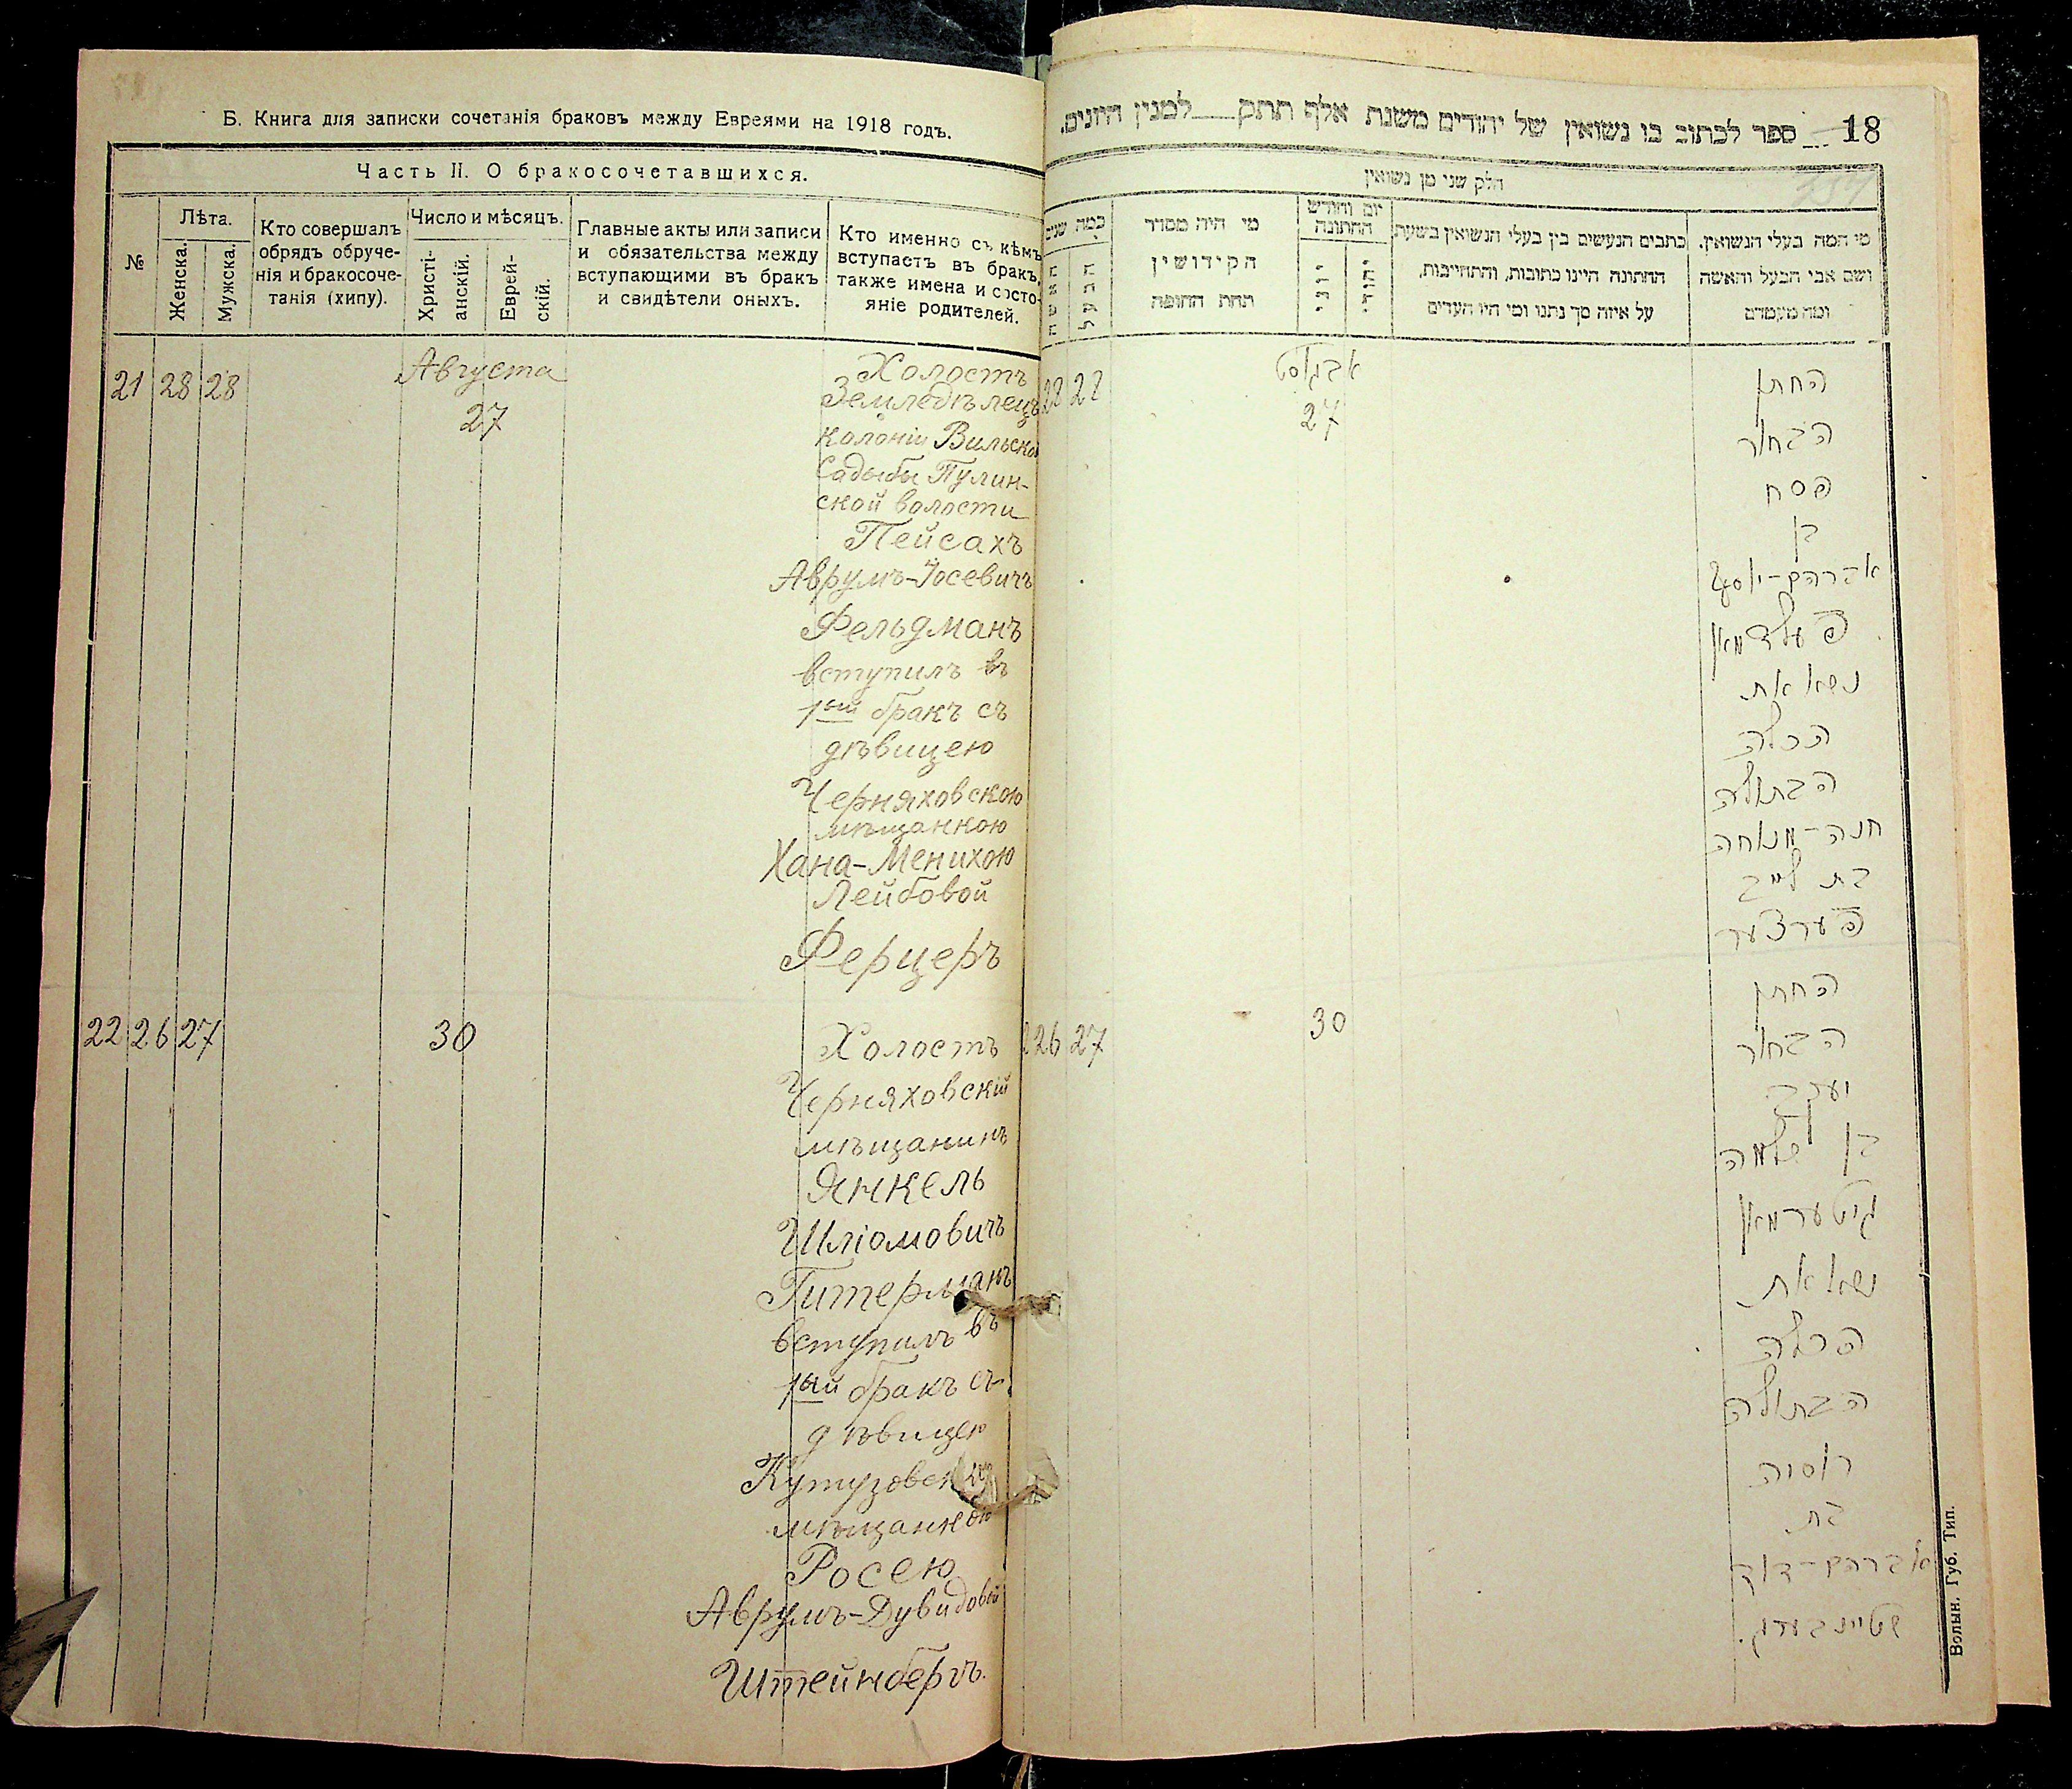 Б. Книга для записки сочетанія браковъ между Евреями на 1918 годъ.
Часть II. О бракосочетавшихся.
№
Лѣта.
Женска.
Мужска.
Кто совершалъ
обрядъ обруче-
нія и бракосоче-
танія (хипу).
Число и мѣсяцъ.
Христі-
анскій.
Еврей-
скій.
Главные акты или записи
и обязательства между
вступающими въ бракъ
и свидѣтели оныхъ.
Кто именно съ кѣмъ
вступаетъ въ бракъ,
также имена и состо-
яніе родителей.
21 28 28
Августа
27
Холостъ
Земледѣлецъ
колоніи Вильской
Садыбы Пулин-
ской волости
Пейсахъ
Аврумъ-Іосевичъ
Фельдманъ
вступилъ въ
1ый бракъ съ
дѣвицею
Черняховскою
мѣщанкою
Хана-Менихою
Лейбовой
Ферцеръ
22 26 27
30
Холостъ
Черняховскій
мѣщанинъ
Янкель
Шліомовичъ
Гитерманъ
вступилъ въ
1ый бракъ съ
дѣвицею
Кутузовскою
мѣщанкою
Росею
Аврумъ-Дувидовой
Штейнбергъ.
18
ספר לכתוב בו נשואין של יהודים משנת אלף תתק למנין היונים.
חלק שני מן נשואין
כמה שנים
האשה
הבעל
מי היה מסדר
הקידושין
תחת החופה
יום וחודש
החתונה
יוני
יהודי
כתבים הנעשים בין בעלי הנשואין בשעת
החתונה היינו כתובות, והתחייבות,
על איזה סך נתנו ומי היו העדים
מי המה בעלי הנשואין,
ושם אבי הבעל והאשה
ומה מעמדם
28 28
אבגוסט
27
החתן
הבחור
פסח
בן
אברהם-יוסף
פעלדמאן
נשא את
הכלה
הבתולה
חנה-מנוחה
בת לייב
פערצער
26 27
30
החתן
הבחור
יעקב
בן שלמה
גיטערמאן
נשא את
הכלה
הבתולה
רוסיה
בת
אברהם-דוד
שטיינבערג.
Волын. Губ. Тип.